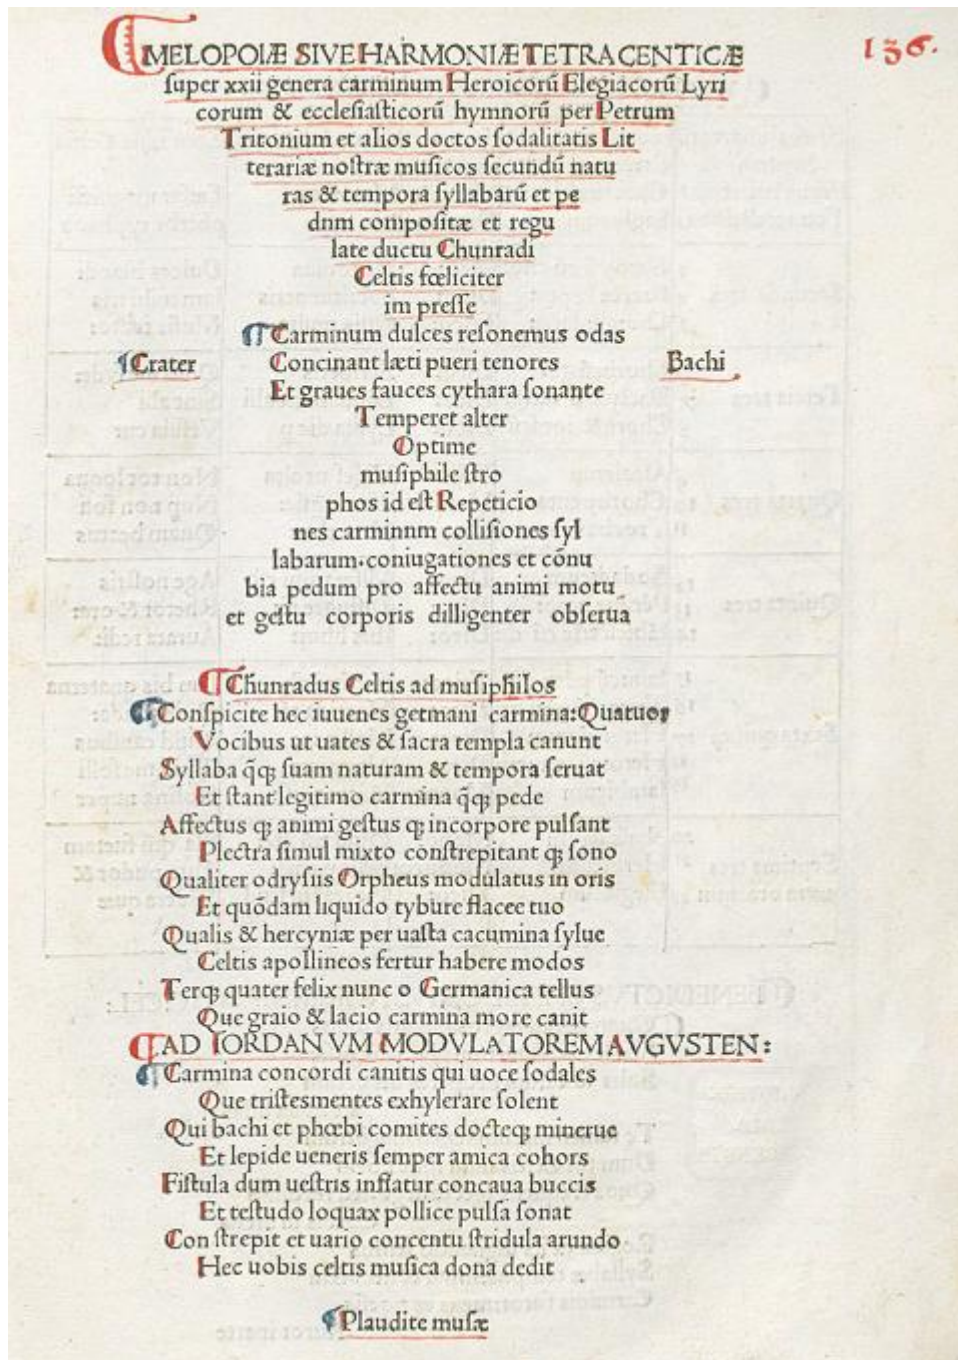 MELOPOIÆ SIVE HARMONIÆ TETRACENTICÆ
136.
ſuper xxii genera carminum Heroicorū Elegiacorū Lyri
corum & eccleſiaſticorū hymnorū per Petrum
Tritonium et alios doctos ſodalitatis Lit
terariæ noſtræ muſicos ſecundū natu
ras & tempora ſyllabarū et pe
dnm compoſitæ et regu
late ductu Chunradi
Celtis fœliciter
im preſſe
Carminum dulces reſonemus odas
Crater Concinant læti pueri tenores Bachi
Et graues fauces cythara ſonante
Temperet alter
Optime
muſiphile ſtro
phos id eſt Repeticio
nes carminnm colliſiones ſyl
labarum.coniugationes et cōnu
bia pedum pro affectu animi motu
et geſtu corporis dilligenter obſerua
Chunradus Celtis ad muſiphilos
Conſpicite hec iuuenes germani carmina:Quatuor
Vocibus ut uates & ſacra templa canunt
Syllaba q̄q; ſuam naturam & tempora ſeruat
Et ſtant legitimo carmina q̄q; pede
Affectus q; animi geſtus q; incorpore pulſant
Plectra ſimul mixto conſtrepitant q; ſono
Qualiter odryſiis Orpheus modulatus in oris
Et quōdam liquido tybure flacce tuo
Qualis & hercyniæ per uaſta cacumina ſylue
Celtis apollineos fertur habere modos
Terq; quater felix nunc o Germanica tellus
Que graio & lacio carmina more canit
AD IORDAN VM MODVLATOREM AVGVSTEN:
Carmina concordi canitis qui uoce ſodales
Que triſtesmentes exhylerare ſolent
Qui bachi et phœbi comites docteq; minerue
Et lepide ueneris ſemper amica cohors
Fiſtula dum ueſtris inflatur concaua buccis
Et teſtudo loquax pollice pulſa ſonat
Con ſtrepit et uario concentu ſtridula arundo
Hec uobis celtis muſica dona dedit
Plaudite muſæ